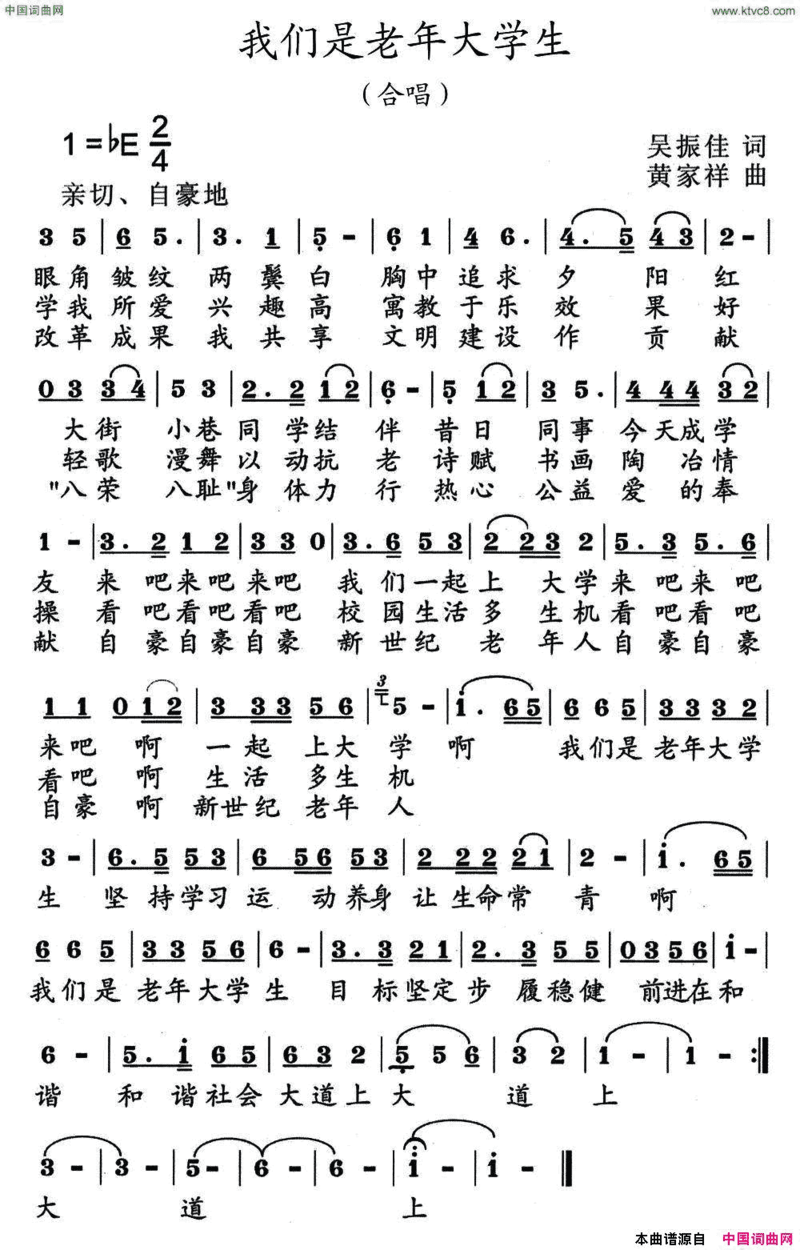 中国词曲网
www.ktvc8.com
我们是老年大学生
（合唱）
1=♭E 2/4
吴振佳 词
黄家祥 曲
亲切、自豪地
3 5 | 6 5. | 3. 1 | 5 - | 6 1 | 4 6. | 4. 5 4 3 | 2 - |
眼角皱纹两鬓白 胸中追求夕阳红
学我所爱兴趣高 寓教于乐效果好
改革成果我共享 文明建设作贡献
0 3 3 4 | 5 3 | 2. 2 1 2 | 6 - | 5 1 2 | 3 5. | 4 4 4 3 2 |
大街小巷同学结伴昔日同事今天成学
轻歌漫舞以动抗老诗赋书画陶冶情
"八荣八耻"身体力行热心公益爱的奉
1 - | 3. 2 1 2 | 3 3 0 | 3. 6 5 3 | 2 2 3 2 | 5. 3 5. 6 |
友来吧来吧来吧我们一起上大学来吧来吧
操看吧看吧看吧校园生活多生机看吧看吧
献自豪自豪自豪新世纪老年人自豪自豪
1 1 0 1 2 | 3 3 3 5 6 | 3 5 - | i. 6 5 | 6 6 5 | 3 3 3 2 |
来吧啊一起上大学啊 我们是老年大学
看吧啊生活多生机
自豪啊新世纪老年人
3 - | 6. 5 5 3 | 6 5 6 5 3 | 2 2 2 2 1 | 2 - | i. 6 5 |
生坚持学习运动养身让生命常青啊
6 6 5 | 3 3 5 6 | 6 - | 3. 3 2 1 | 2. 3 5 5 | 0 3 5 6 | i - |
我们是老年大学生目标坚定步履稳健前进在和
6 - | 5. i 6 5 | 6 3 2 | 5 5 6 | 3 2 | 1 - | 1 - :||
谐和谐社会大道上大道上
3 - | 3 - | 5 - | 6 - | 6 - | i - | i - ||
大道上
本曲谱源自 中国词曲网